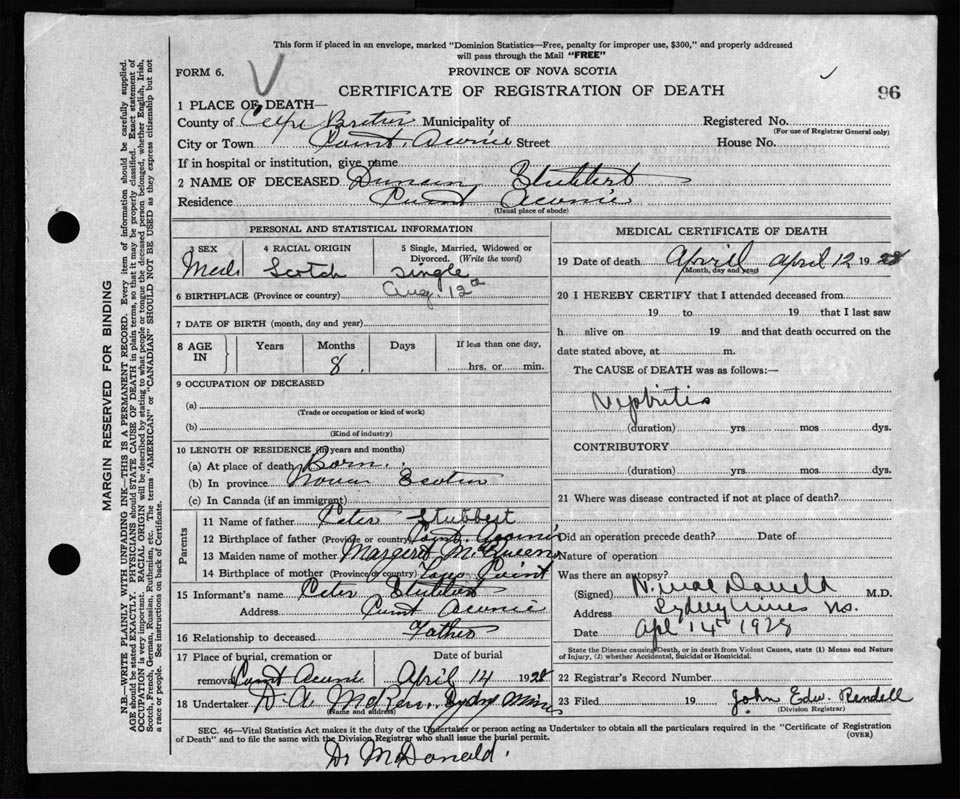 This form if placed in an envelope, marked "Dominion Statistics—Free, penalty for improper use, $300," and properly addressed
will pass through the Mail "FREE"
FORM 6.
PROVINCE OF NOVA SCOTIA
CERTIFICATE OF REGISTRATION OF DEATH
96
1 PLACE OF DEATH—
County of Cape Breton Municipality of Registered No.
(For use of Registrar General only)
City or Town Point Aconie Street House No.
If in hospital or institution, give name
2 NAME OF DECEASED Duncan Stubbert
Residence Point Aconie
(Usual place of abode)
PERSONAL AND STATISTICAL INFORMATION
3 SEX 4 RACIAL ORIGIN 5 Single, Married, Widowed or
Divorced. (Write the word)
Scotch Single
6 BIRTHPLACE (Province or country) Aug. 12
7 DATE OF BIRTH (month, day and year)
8 AGE IN Years Months Days If less than one day,
8 hrs. or min.
9 OCCUPATION OF DECEASED
(a)
(Trade or occupation or kind of work)
(b)
(Kind of industry)
10 LENGTH OF RESIDENCE (in years and months)
(a) At place of death Born.
(b) In province Nova Scotia
(c) In Canada (if an immigrant)
Parents
11 Name of father Peter Stubbert
12 Birthplace of father (Province or country) Point Aconie
13 Maiden name of mother Margaret McQueen
14 Birthplace of mother (Province or country) Point
15 Informant's name Peter Stubbert
Address Point Aconie
16 Relationship to deceased Father
17 Place of burial, cremation or Date of burial
removal Point Aconie April 14 1928
18 Undertaker D. A. Sydney Mines
(Name and address)
MEDICAL CERTIFICATE OF DEATH
19 Date of death April April 12 1928
(Month, day and year)
20 I HEREBY CERTIFY that I attended deceased from
19 to 19 that I last saw
h alive on 19 and that death occurred on the
date stated above, at m.
The CAUSE of DEATH was as follows:—
Nephritis
(duration) yrs mos dys.
CONTRIBUTORY
(duration) yrs. mos. dys.
21 Where was disease contracted if not at place of death?
Did an operation precede death? Date of
Nature of operation
Was there an autopsy?
(Signed) N. MacDonald M.D.
Address Sydney Mines N.S.
Date Apl 14th 1928
State the Disease causing Death, or in death from Violent Causes, state (1) Means and Nature
of Injury, (2) whether Accidental, Suicidal or Homicidal.
22 Registrar's Record Number
23 Filed 19 John Edw. Rendell
(Division Registrar)
SEC. 46—Vital Statistics Act makes it the duty of the Undertaker or person acting as Undertaker to obtain all the particulars required in the "Certificate of Registration
of Death" and to file the same with the Division Registrar who shall issue the burial permit. (OVER)
Dr McDonald.
MARGIN RESERVED FOR BINDING
N.B.—WRITE PLAINLY WITH UNFADING INK—THIS IS A PERMANENT RECORD. Every item of information should be carefully supplied.
AGE should be stated EXACTLY. PHYSICIANS should STATE CAUSE OF DEATH in plain terms, so that it may be properly classified. Exact statement of
OCCUPATION is very important. RACIAL ORIGIN will be described by stating to what people or tongue the deceased person belonged, whether English, Irish,
Scotch, French, German, Russian, Ruthenian, etc. The terms "AMERICAN" or "CANADIAN" SHOULD NOT BE USED as they express citizenship but not
a race or people. See instructions on back of Certificate.